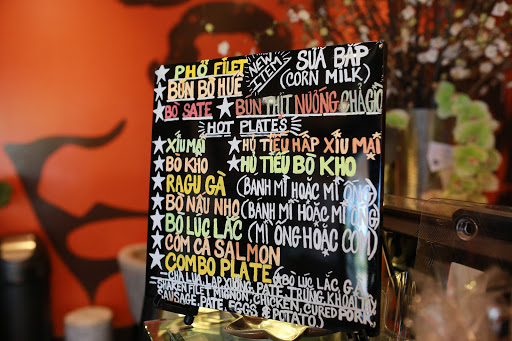 PHỞ FILET
NEW ITEM
SỮA BẮP
(CORN MILK)
BÚN BÒ HUẾ
BÒ SATE ★ BÚN THỊT NƯỚNG CHẢ GIÒ
HOT PLATES
XÍU MẠI
HỦ TIẾU HẤP XÍU MẠI
BÒ KHO
HỦ TIẾU BÒ KHO
RAGU GÀ (BÁNH MÌ HOẶC MÌ ỐNG)
BÒ NẤU NHO (BÁNH MÌ HOẶC MÌ ỐNG
BÒ LÚC LẮC (MÌ ỐNG HOẶC CƠM)
CƠM CÁ SALMON
COMBO PLATE
BÒ LÚC LẮC, GÀ,
CHẢ LỤA, LẠP XƯỞNG, PATE, TRỨNG, KHOAI TÂY
SHAKEN FILET MIGNON, CHICKEN, CURED PORK,
SAUSAGE, PATE, EGGS & POTATO)